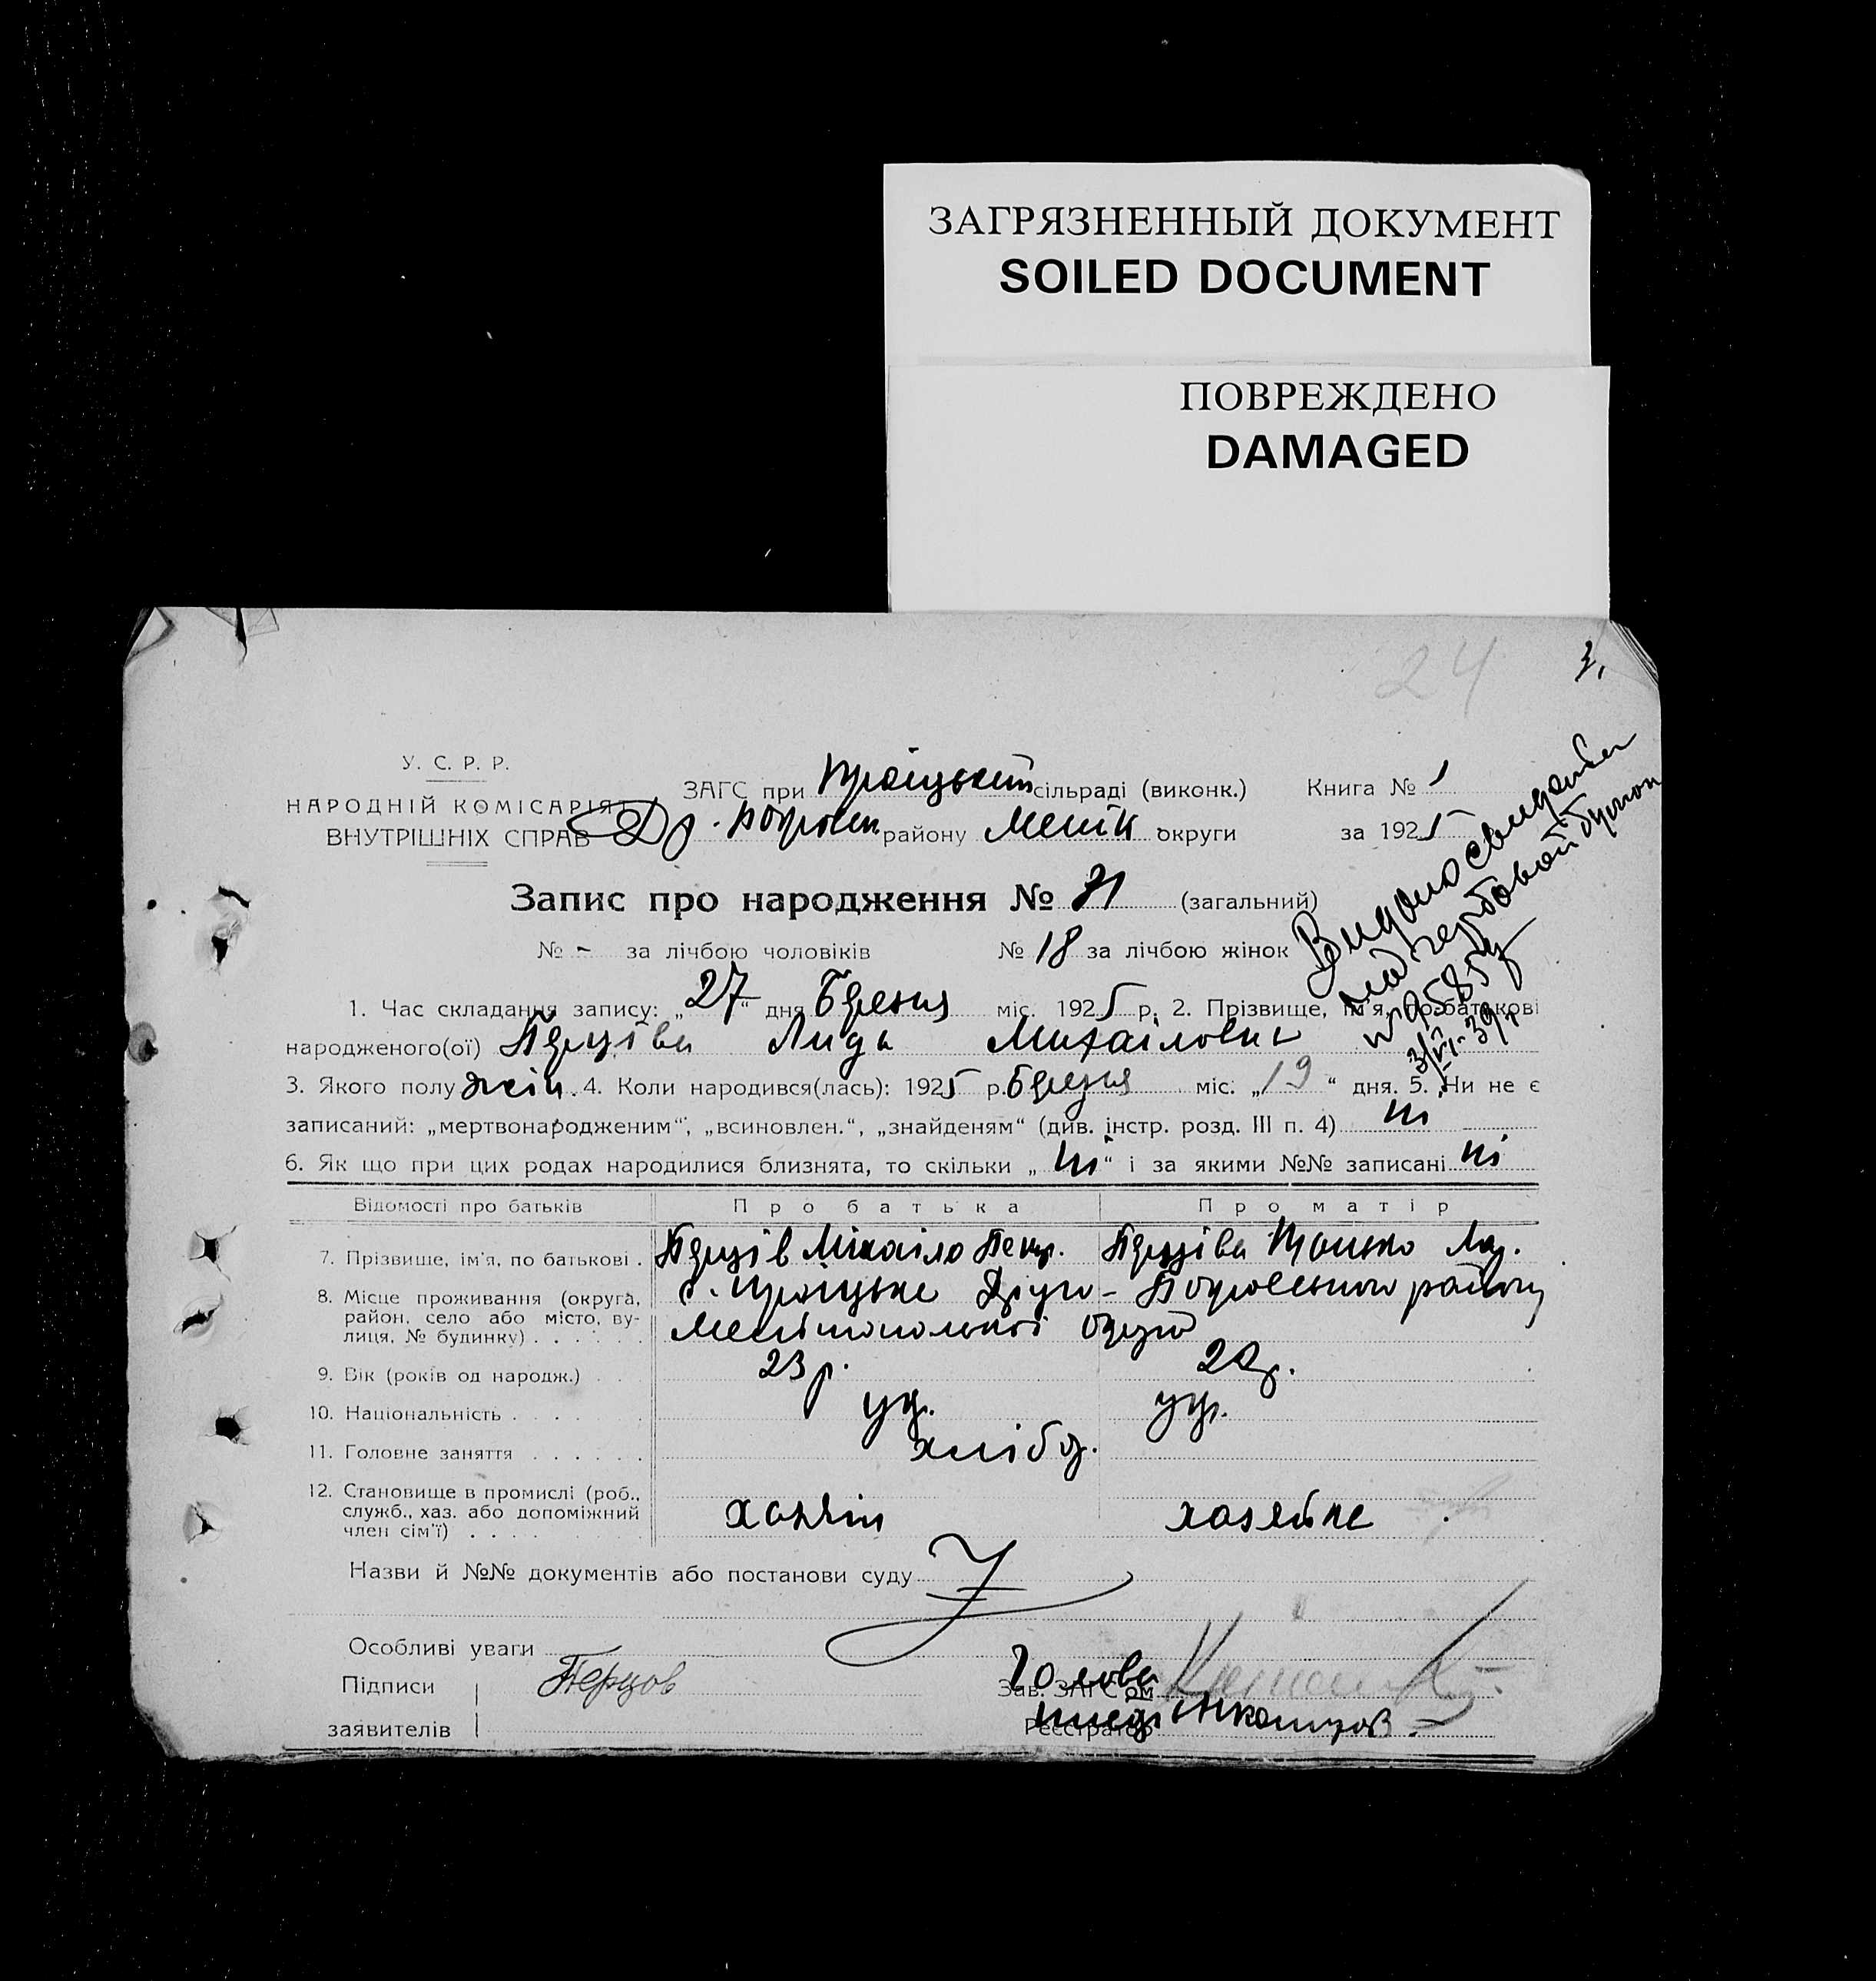 ЗАГРЯЗНЕННЫЙ ДОКУМЕНТ
SOILED DOCUMENT
ПОВРЕЖДЕНО
DAMAGED
24
У. С. Р. Р.
НАРОДНІЙ КОМІСАРІЯТ
ВНУТРІШНІХ СПРАВ
ЗАГС при Троіцькій сільраді (виконк.) Книга № 1
Др. Покровськ району Меліт округи за 1925
Запис про народження № 31 (загальний)
№ - за лічбою чоловіків № 18 за лічбою жінок
Видано свидет
под гербовой
3/VI-39
1. Час складання запису: „27“ дня Березня міс. 1925 р. 2. Прізвище, ім'я, по батькові
народженого(ої) Перцова Лида Михаіловна
3. Якого полу жін. 4. Коли народився(лась): 1925 р. Березня міс. „19“ дня. 5. Чи не є
записаний: „мертвонародженим“, „всиновлен.“, „знайденям“ (див. інстр. розд. III п. 4) ні
6. Як що при цих родах народилися близнята, то скільки „ні“ і за якими №№ записані ні
Відомості про батьків Про батька Про матір
7. Прізвише, ім'я, по батькові . Перців Міхаіло Петр.
8. Місце проживання (округа, район, село або місто, вулиця, № будинку) с. Троіцьке Друго-Покровського району
Мелітопольскоі округи
9. Вік (років од народж.) 23 р. 22 р.
10. Національність укр. укр.
11. Головне заняття хлібор.
12. Становище в промислі (роб., служб., хаз. або допоміжний член сім'ї) хазяін хазяйка
Назви й №№ документів або постанови суду
Особливі уваги
Підписи Перцов Голова
Зав. ЗАГС'ом
заявителів Реєстратор